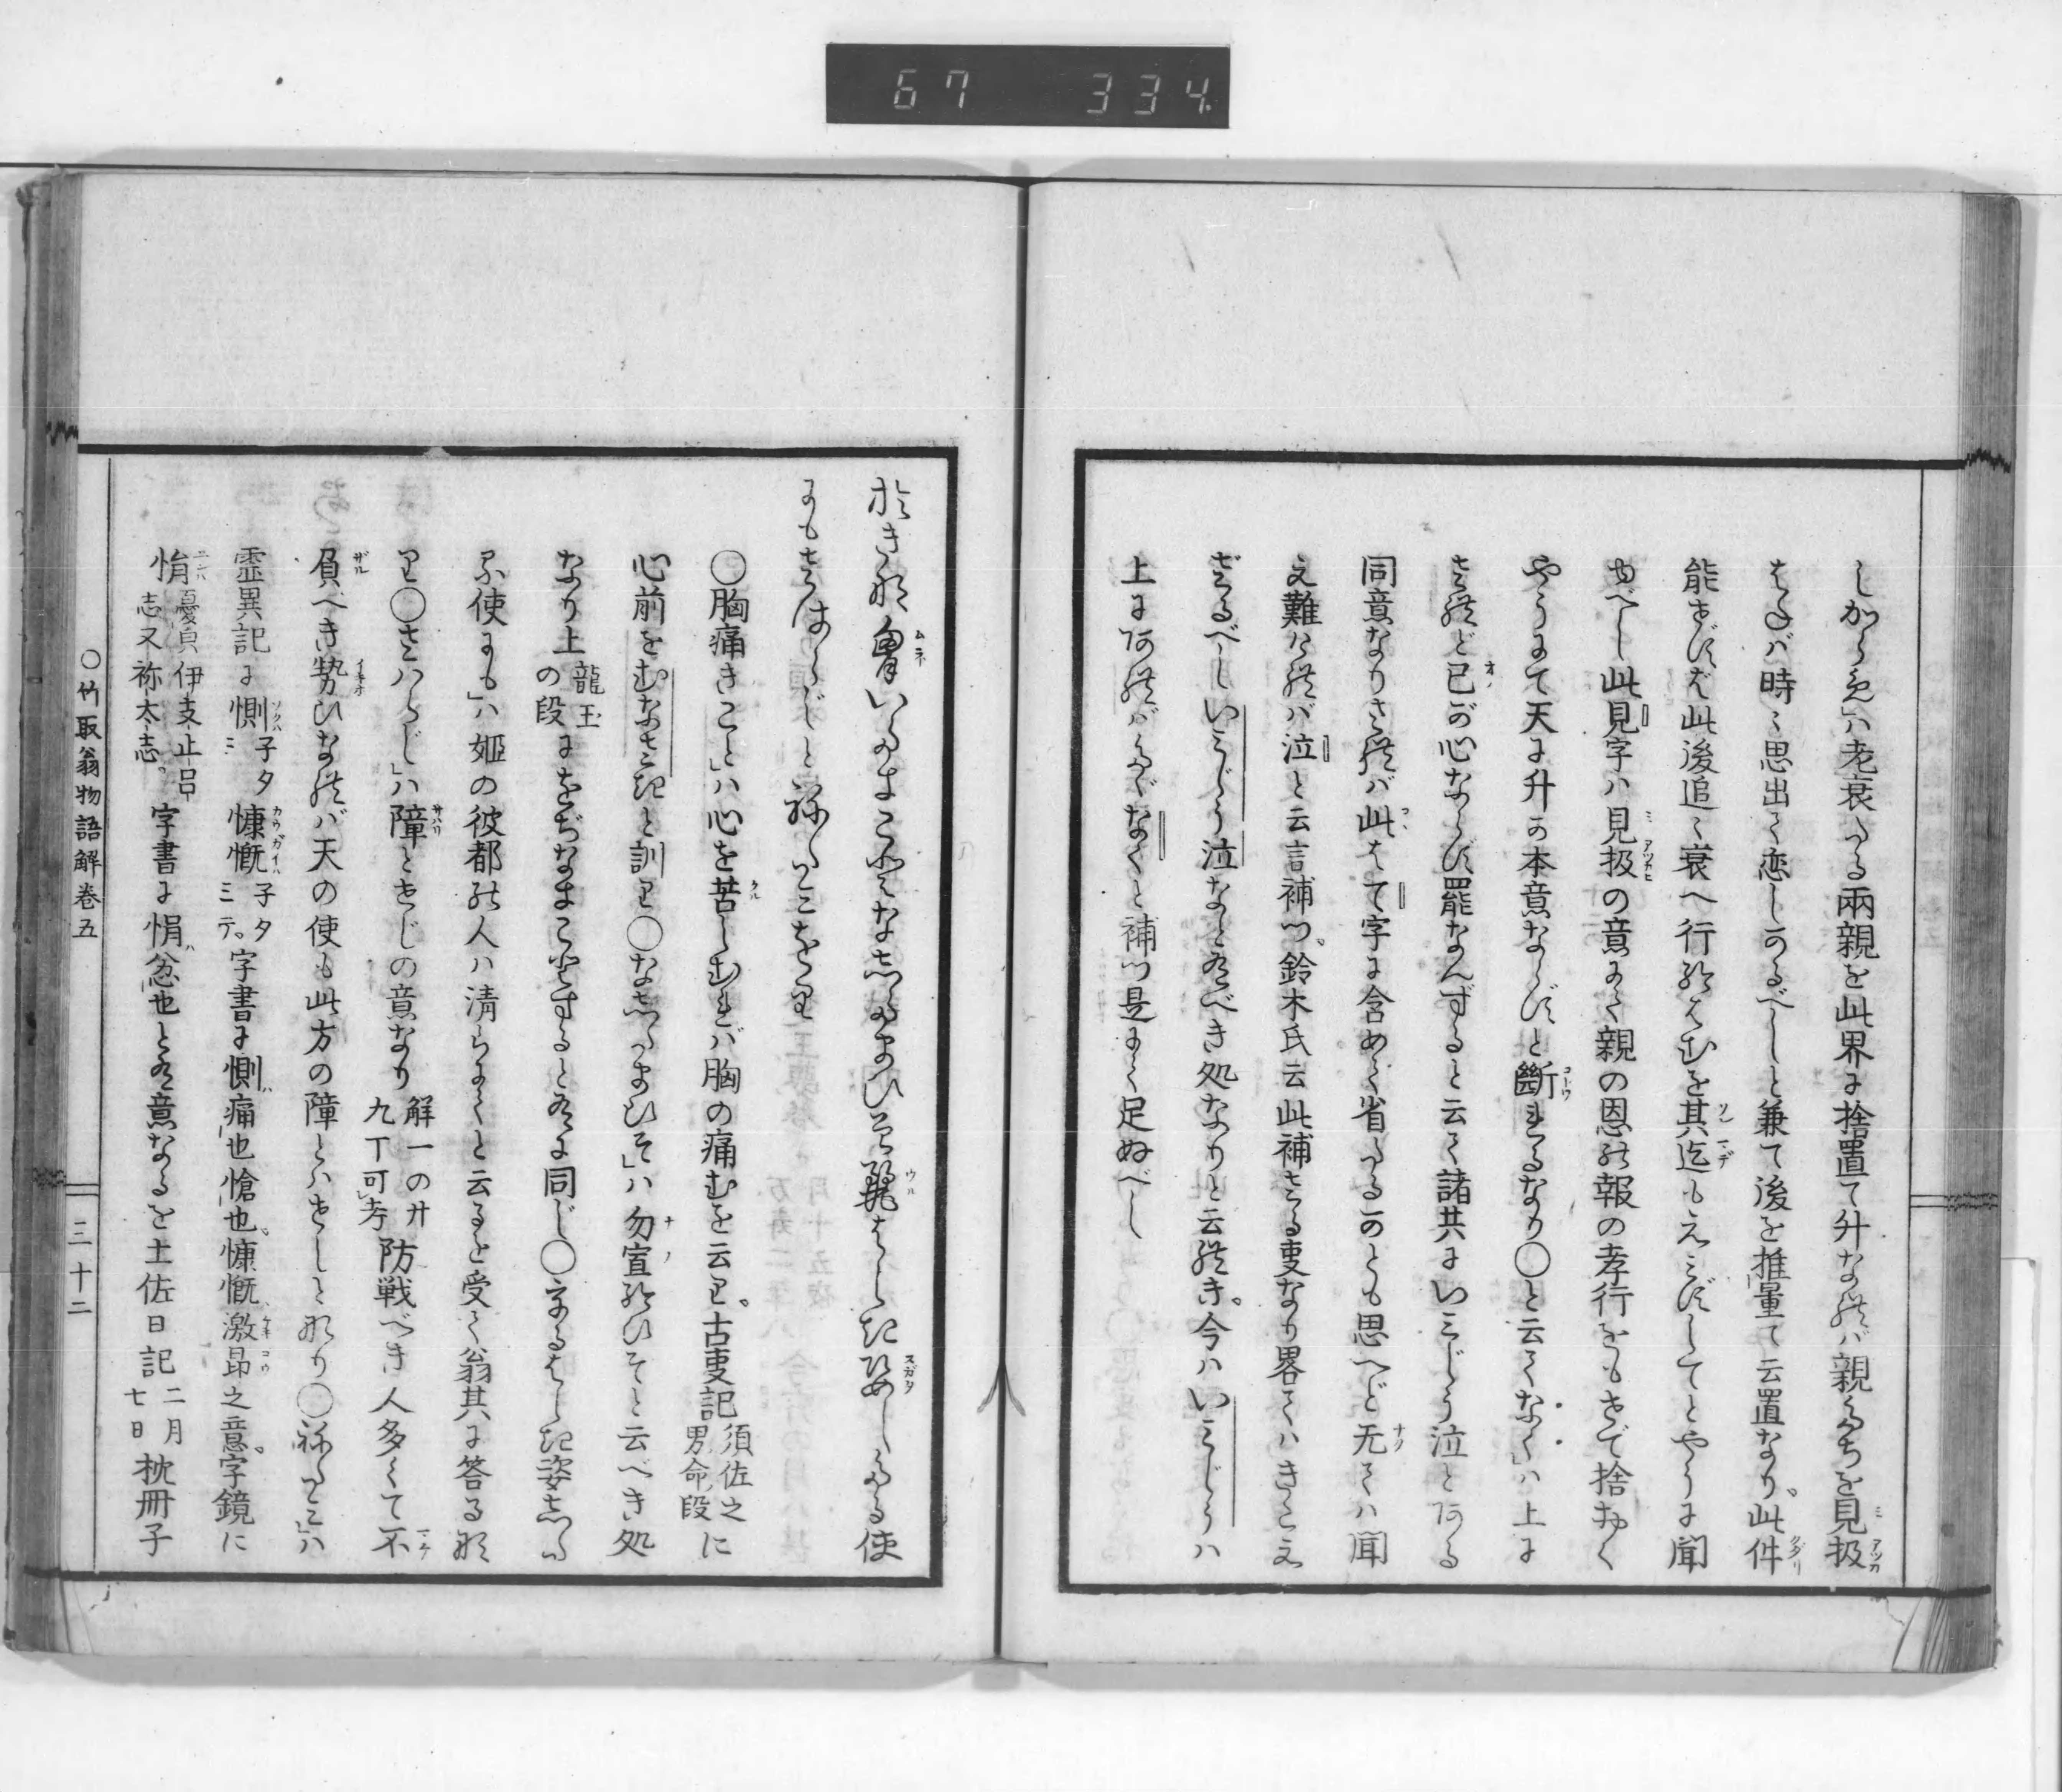 67 334
しからむ」ハ老衰たる兩親を此界に捨置て升なれバ親たちを見扱
はねバ時々思出て恋しかるべしと兼て後を推量て云置なり。此件
能せずば此後追々衰へ行給はむを其迄もえみずしてとやうに聞
ゆべし此見字ハ見扱の意にて親の恩の報の孝行をもせで捨おく
やうにて天に升か本意ならずと斷れるなり○と云てなく」ハ上に
されど已が心ならず罷なんずると云て諸共にいみじう泣とある
同意なりされバ此はて字に含めて省たるかとも思へど无てハ聞
え難けれバ泣と云言補ツ。鈴木氏云此補さる叓なり畧てハきこえ
ざるべしいみじう泣なと有べき処なりと云れき。今ハいみじうハ
上にあれバたゞなくと補ツ是にて足ぬべし
おきな胷いたきことなしたまひそ麗はしき姿したる使
にもさはらじとねたみをり
○胸痛きこと」ハ心を苦しむれバ胸の痛むを云り。古叓記須佐之男命段に
心前をむなさきと訓り○なしたまひそ」ハ勿宣給ひそと云べき処
なり上龍玉の段にをぢなきことするにと有に同じ○うるはしき姿した
る使にも」ハ姫の彼都の人ハ清らにてと云るを受て翁其に答るな
り○さハらじ」ハ障とせじの意なり解一の廾九丁可考防戦べき人多くて不
負べき勢ひなれバ天の使も此方の障とハせしとなり○ねたみ」ハ
霊異記に惻子タミ慷慨子タミテ。字書に惻ハ痛也愴也。慷慨激昂之意。字鏡に
悁憂皃伊支止呂志又祢太志。字書に悁ハ忿也と有意なるを土佐日記二月七日枕冊子
○竹取翁物語解巻五
三十二